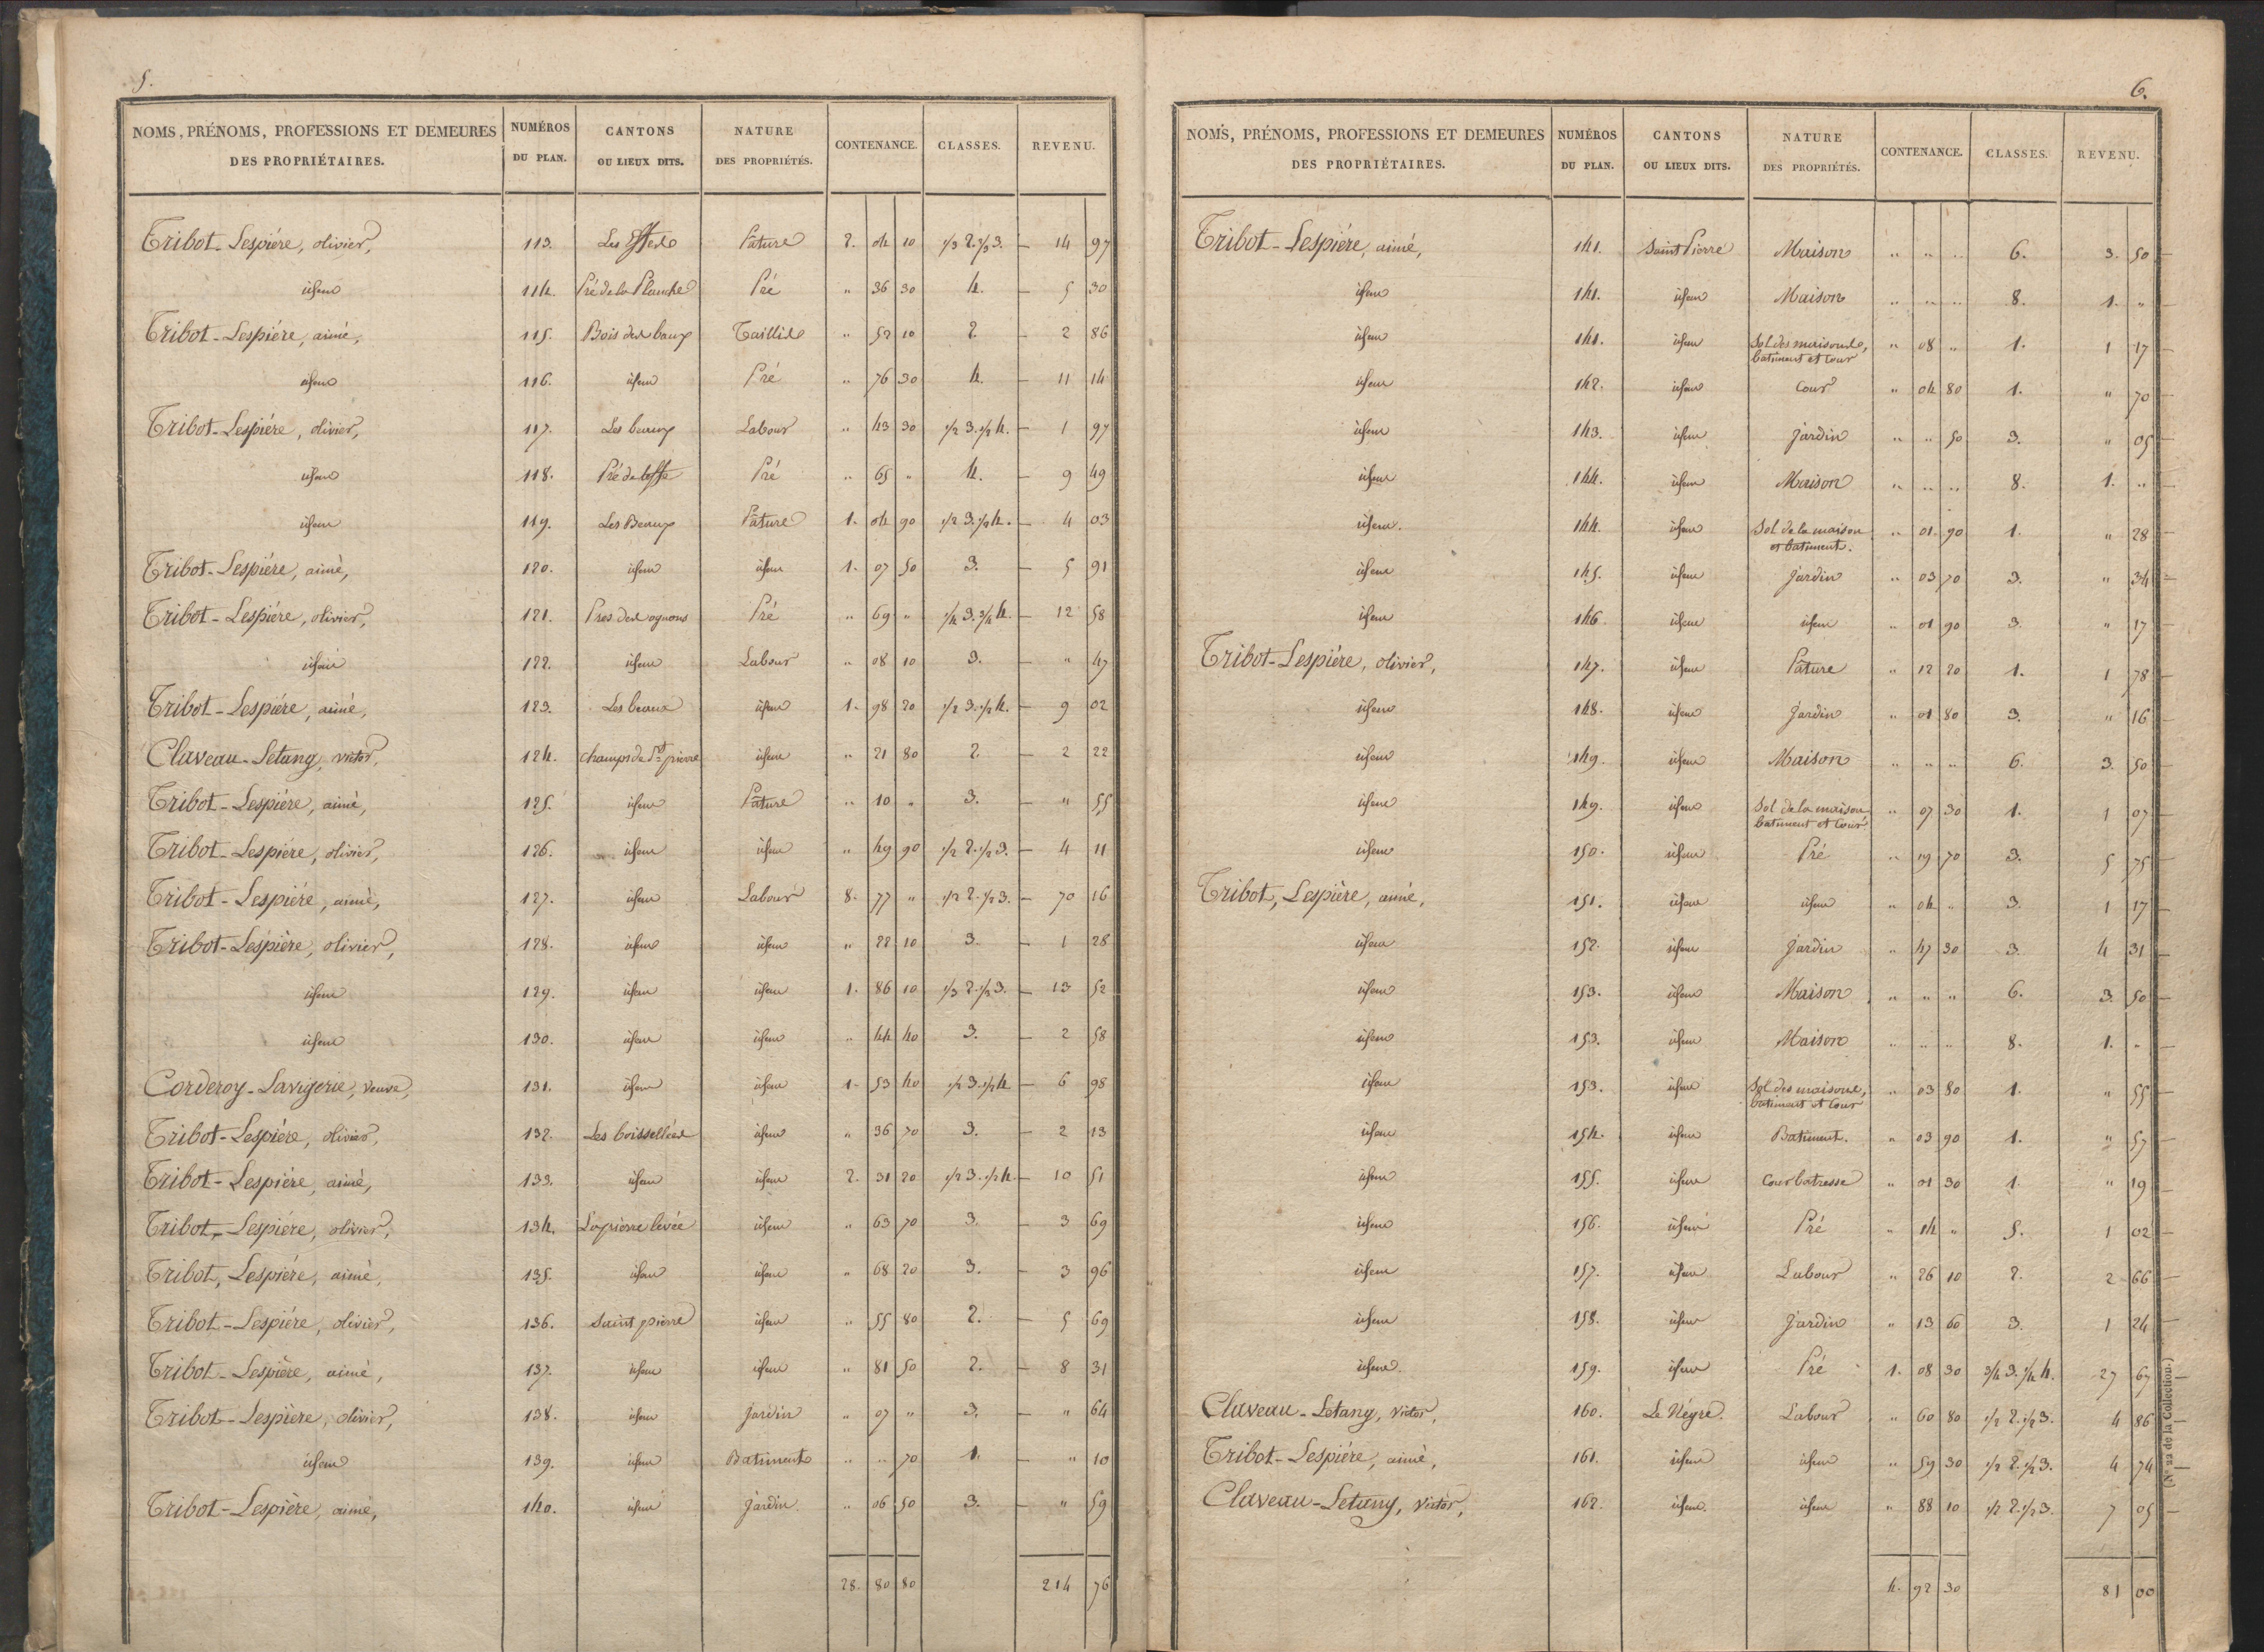 5.
NOMS, PRÉNOMS, PROFESSIONS ET DEMEURES DES PROPRIÉTAIRES. NUMÉROS DU PLAN. CANTONS OU LIEUX DITS. NATURE DES PROPRIÉTÉS. CONTENANCE. CLASSES. REVENU.
Tribot-Lespiére, olivier, 113. Les Pature 2. 04 10 1/3 2. 2/3 3. 14 97
idem 114. Pré de la Planche Pré " 36 30 4. 5 30
Tribot-Lespiére, aimé, 115. Bois des baux Taillis " 52 10 2. 2 86
idem 116. idem Pré " 76 30 4. 11 14
Tribot-Lespiére, olivier, 117. Les beaux Labour " 43 30 1/2 3. 1/2 4. 1 97
idem 118. Pré de Pré " 65 " 4. 9 49
idem 119. Les Beaux Pâture 1. 04 90 1/2 3. 1/2 4. 4 03
Tribot-Lespiére, aimé, 120. idem idem 1. 07 50 3. 5 91
Tribot-Lespiére, olivier, 121. Pres des ognons Pré " 69 " 1/4 3. 3/4 4. 12 58
idem 122. idem Labour " 08 10 3. " 47
Tribot-Lespiére, aimé, 123. Les beaux idem 1. 98 20 1/2 3. 1/2 4. 9 02
Claveau-Letang, victor, 124. champs de St pierre idem " 21 80 2. 2 22
Tribot-Lespiére, aimé, 125. idem Pâture " 10 " 3. " 55
Tribot-Lespiére, olivier, 126. idem idem " 49 90 1/2 2. 1/2 3. 4 11
Tribot-Lespiére, aimé, 127. idem Labour 8. 77 " 1/2 2. 1/2 3. 70 16
Tribot-Lespière, olivier, 128. idem idem " 22 10 3. 1 28
idem 129. idem idem 1. 86 10 1/3 2. 2/3 3. 13 52
idem 130. idem idem " 44 40 3. 2 58
Corderoy-Lavigerie, veuve, 131. idem idem 1. 53 40 1/2 3. 1/2 4 6 98
Tribot-Lespiére, olivier, 132. Les boissellées idem " 36 70 3. 2 13
Tribot-Lespiére, aimé, 133. idem idem 2. 31 20 1/2 3. 1/2 4. 10 51
Tribot-Lespiére, olivier, 134. Lapierre levée idem " 63 70 3. 3 69
Tribot, Lespiére, aimé, 135. idem idem " 68 20 3. 3 96
Tribot-Lespiére, olivier, 136. Saint pierre idem " 55 80 2. 5 69
Tribot-Lespière, aimé, 137. idem idem " 81 50 2. 8 31
Tribot-Lespière, olivier, 138. idem Jardin " 07 " 3. " 64
idem 139. idem Batiments " " 70 1. " 10
Tribot-Lespière, aimé, 140. idem jardin " 06 50 3. " 59
28. 80 80 214 76
6.
NOMS, PRÉNOMS, PROFESSIONS ET DEMEURES DES PROPRIÉTAIRES. NUMÉROS DU PLAN. CANTONS OU LIEUX DITS. NATURE DES PROPRIÉTÉS. CONTENANCE. CLASSES. REVENU.
Tribot-Lespiére, aimé, 141. Saint Pierre Maison " " " 6. 3. 50
idem 141. idem Maison " " " 8. 1. "
idem 141. idem Sol des maisons, batiment et cour " 08 " 1. 1 17
idem 142. idem Cour " 04 80 1. " 70
idem 143. idem jardin " " 50 3. " 05
idem 144. idem Maison " " " 8. 1. "
idem. 144. idem Sol de la maison et batiment. " 01 90 1. " 28
idem 145. idem Jardin " 03 70 3. " 34
idem 146 idem idem " 01 90 3. " 17
Tribot-Lespiére, olivier, 147. idem Pâture " 12 20 1. 1 78
idem 148. idem Jardin " 01 80 3. " 16
idem 149. idem Maison " " " 6. 3. 50
idem 149. idem Sol de la maison batiment et cour " 07 30 1. 1 07
idem 150. idem Pré " 19 70 3. 5 75
Tribot, Lespière, aimé, 151. idem idem " 04 " 3. 1 17
idem 152. idem Jardin " 47 30 3. 4 31
idem 153. idem Maison " " " 6. 3. 50
idem 153. idem Maison " " " 8. 1. "
idem 153. idem Sol des maisons, batiment et cour " 03 80 1. " 55
idem 154. idem Batiment. " 03 90 1. " 57
idem 155. idem Cour batresse " 01 30 1. " 19
idem 156. idem Pré " 14 " 5. 1 02
idem 157. idem Labour " 26 10 2. 2 66
idem 158. idem Jardin " 13 60 3. 1 24
idem 159. idem Pré 1. 08 30 3/4 3. 1/4 4. 27 67
Claveau-Letang, victor, 160. Le Négre. Labour " 60 80 1/2 2. 1/2 3. 4 86
Tribot-Lespiére, aimé, 161. idem idem " 59 30 1/2 2. 1/2 3. 4 74
Claveau-Letang, victor, 162. idem. idem " 88 10 1/2 2. 1/2 3. 7 05
4. 92 30 81 00
(N° 22 de la Collection.)